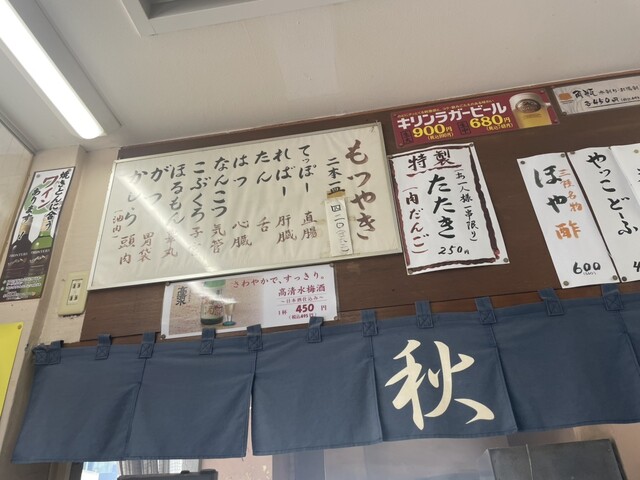 もつやき
二本一皿 四二〇
てっぽー 直腸
ればー 肝臓
たん 舌
はつ 心臓
なんこつ 気管
こぶくろ 子
ほるもん 睾丸
がつ 胃袋
かしら 頭肉
キリンラガービール
900円
680円
特製
たたき
(お一人様一串限り)
(肉だんご)
250円
やっこどーふ
三陸名物
ほや酢
600
さわやかで、すっきり。
高清水梅酒
～日本酒仕込み～
1杯 450円
焼きとんに合う
ワイン
あります
角瓶
秋